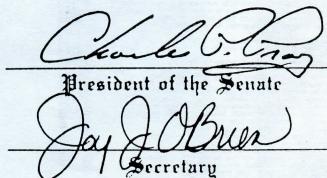 Charles P. Pray
President of the Senate
Joy J. O'Brien
Secretary